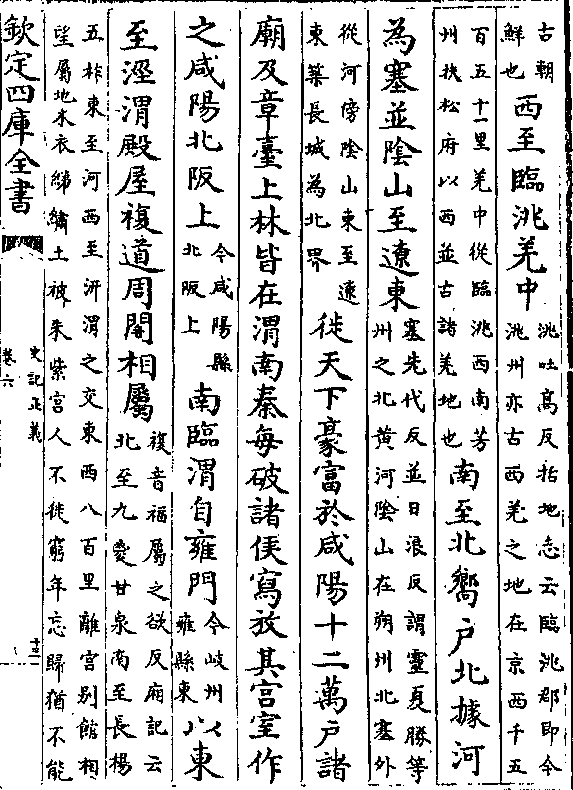 古朝
鮮也
西至臨洮羌中
洮吐髙反括地志云臨洮郡即今
洮州亦古西羌之地在京西千五
百五十一里羌中從臨洮西南芳
州扶松府以西並古諸羌地也
南至北嚮户北據河
為塞並隂山至遼東
塞先代反並日浪反謂靈夏勝等
州之北黄河隂山在朔州北塞外
從河傍隂山東至遼
東築長城為北界
徙天下豪富於咸陽十二萬户諸
廟及章臺上林皆在渭南秦每破諸侯寫放其宫室作
之咸陽北阪上
今咸陽縣
北阪上
南臨渭自雍門
今岐州
雍縣東
以東
至涇渭殿屋複道周閣相屬
複音福屬之欲反廟記云
北至九嵏甘泉南至長楊
五柞東至河西至汧渭之交東西八百里離宫别館相
望屬地木衣綈繡土被朱紫宫人不徙窮年忘歸猶不能
欽定四庫全書
史記正義
卷六